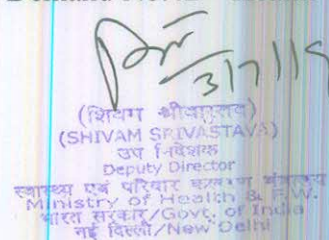 3/7/19
(शिवम श्रीवास्तव)
(SHIVAM SRIVASTAVA)
उप निदेशक
Deputy Director
स्वास्थ्य एवं परिवार कल्याण मंत्रालय
Ministry of Health & F.W.
भारत सरकार/Govt. of India
नई दिल्ली/New Delhi